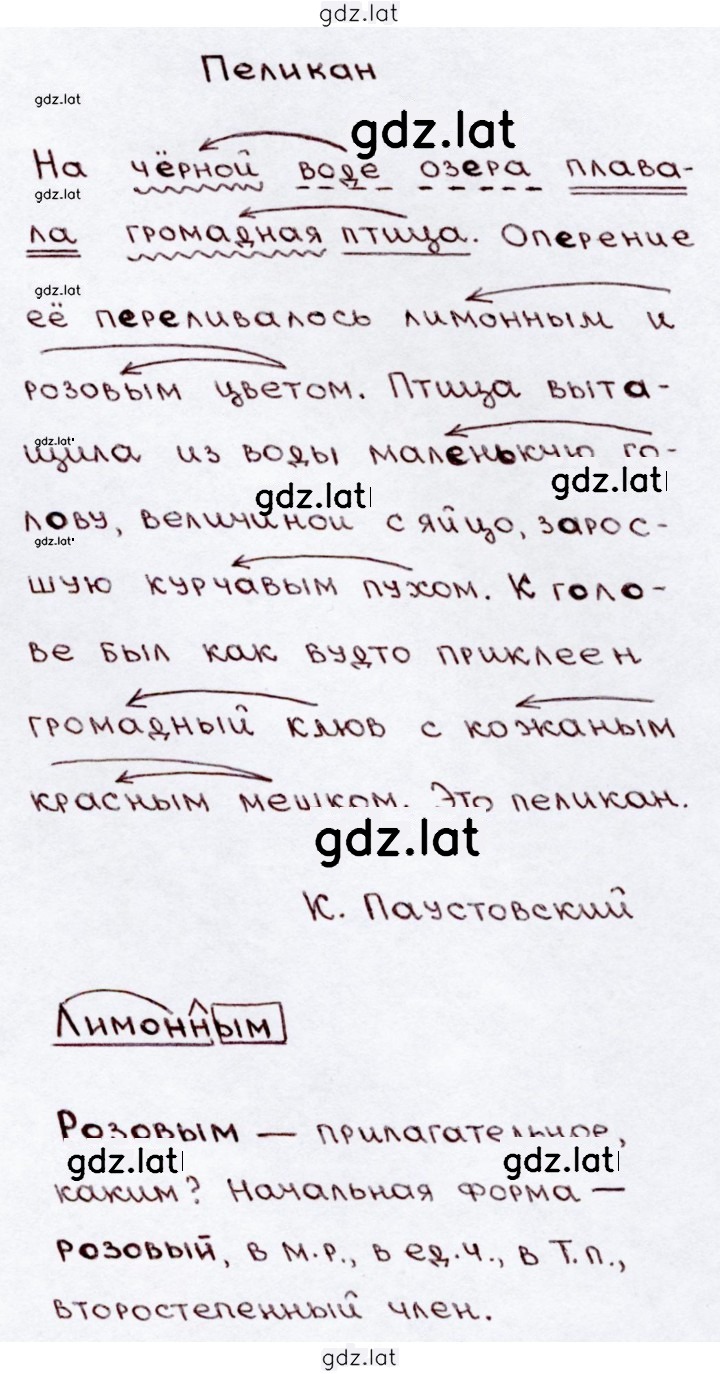 gdz.lat
Пеликан
gdz.lat
gdz.lat
На чёрной воде озера плава-
gdz.lat
ла громадная птица. Оперение
gdz.lat
её переливалось лимонным и
розовым цветом. Птица выта-
gdz.lat
щила из воды маленькую го-
gdz.lat
gdz.lat
лову, величиной с яйцо, зарос-
gdz.lat
шую курчавым пухом. К голо-
ве был как будто приклеен
громадный клюв с кожаным
красным мешком. Это пеликан.
gdz.lat
К. Паустовский
Лимонным
Розовым — прилагательное,
gdz.lat
gdz.lat
каким? Начальная форма —
розовый, в м.р., в ед.ч., в Т.п.,
второстепенный член.
gdz.lat